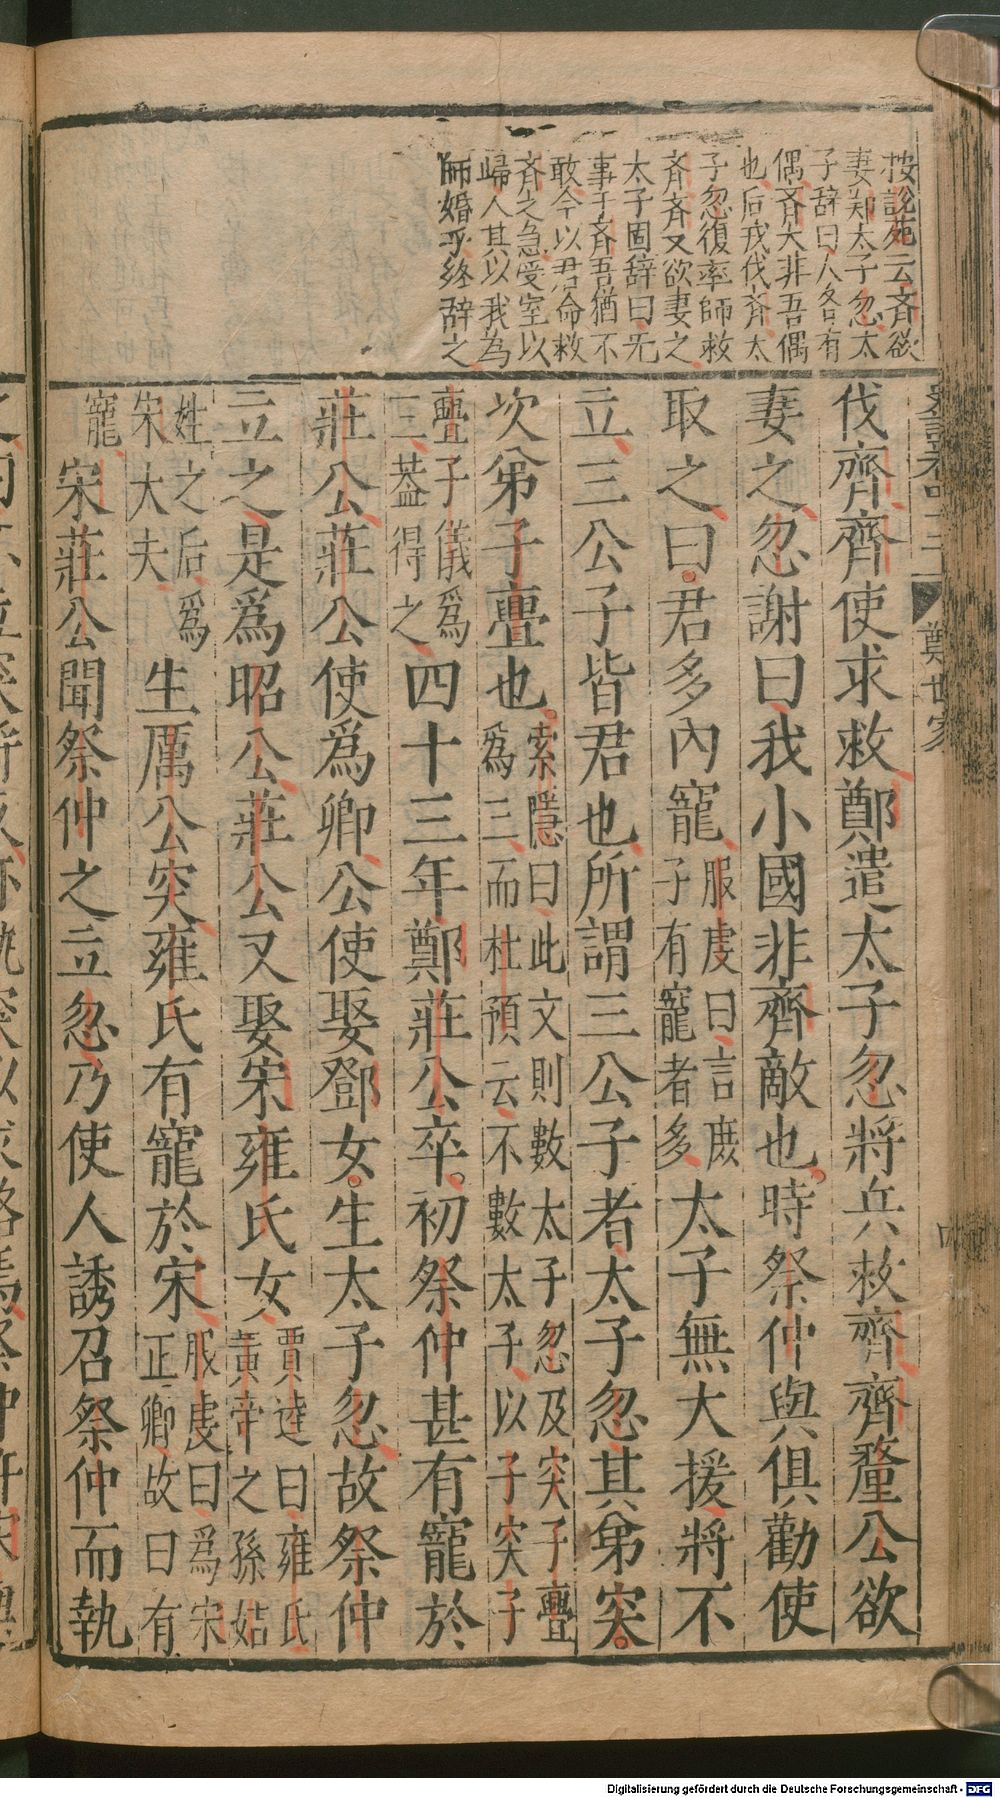 按說苑云齊欲
妻鄭太子忽太
子辭曰人各有
偶齊大非吾偶
也后戎伐齊太
子忽復率師救
齊齊又欲妻之
太子固辭曰旡
事于齊吾猶不
敢今以君命救
齊之急受室以
歸人其以我為
師婚乎終辭之
鄭世家
伐齊齊使求救鄭遣太子忽將兵救齊齊釐公欲
妻之忽謝曰我小國非齊敵也時祭仲與俱勸使
取之曰君多內寵服虔曰言庶子有寵者多太子無大援將不
立三公子皆君也所謂三公子者太子忽其弟突
次弟子亹也索隱曰此文則數太子忽及突子亹爲三而杜預云不數太子以子突子
亹子儀爲三蓋得之四十三年鄭莊公卒初祭仲甚有寵於
莊公莊公使爲卿公使娶鄧女生太子忽故祭仲
立之是爲昭公莊公又娶宋雍氏女賈逵曰雍氏黃帝之孫姞
姓之后爲宋大夫生厲公突雍氏有寵於宋服虔曰爲宋正卿故曰有
寵宋莊公聞祭仲之立忽乃使人誘召祭仲而執
Digitalisierung gefördert durch die Deutsche Forschungsgemeinschaft - DFG